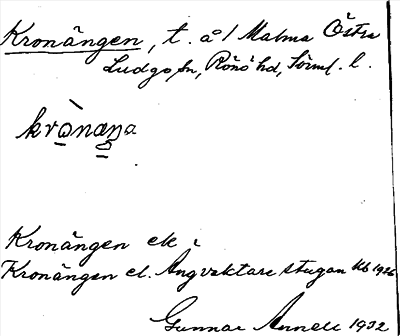 Kronängen, t. å 1 Malma Östra
Ludgo sn, Rönö hd, Sörml. l.
krònæŋa
Kronängen ek
Kronängen el. Ängvaktarestugan Kb 1926
Gunnar Annell 1932